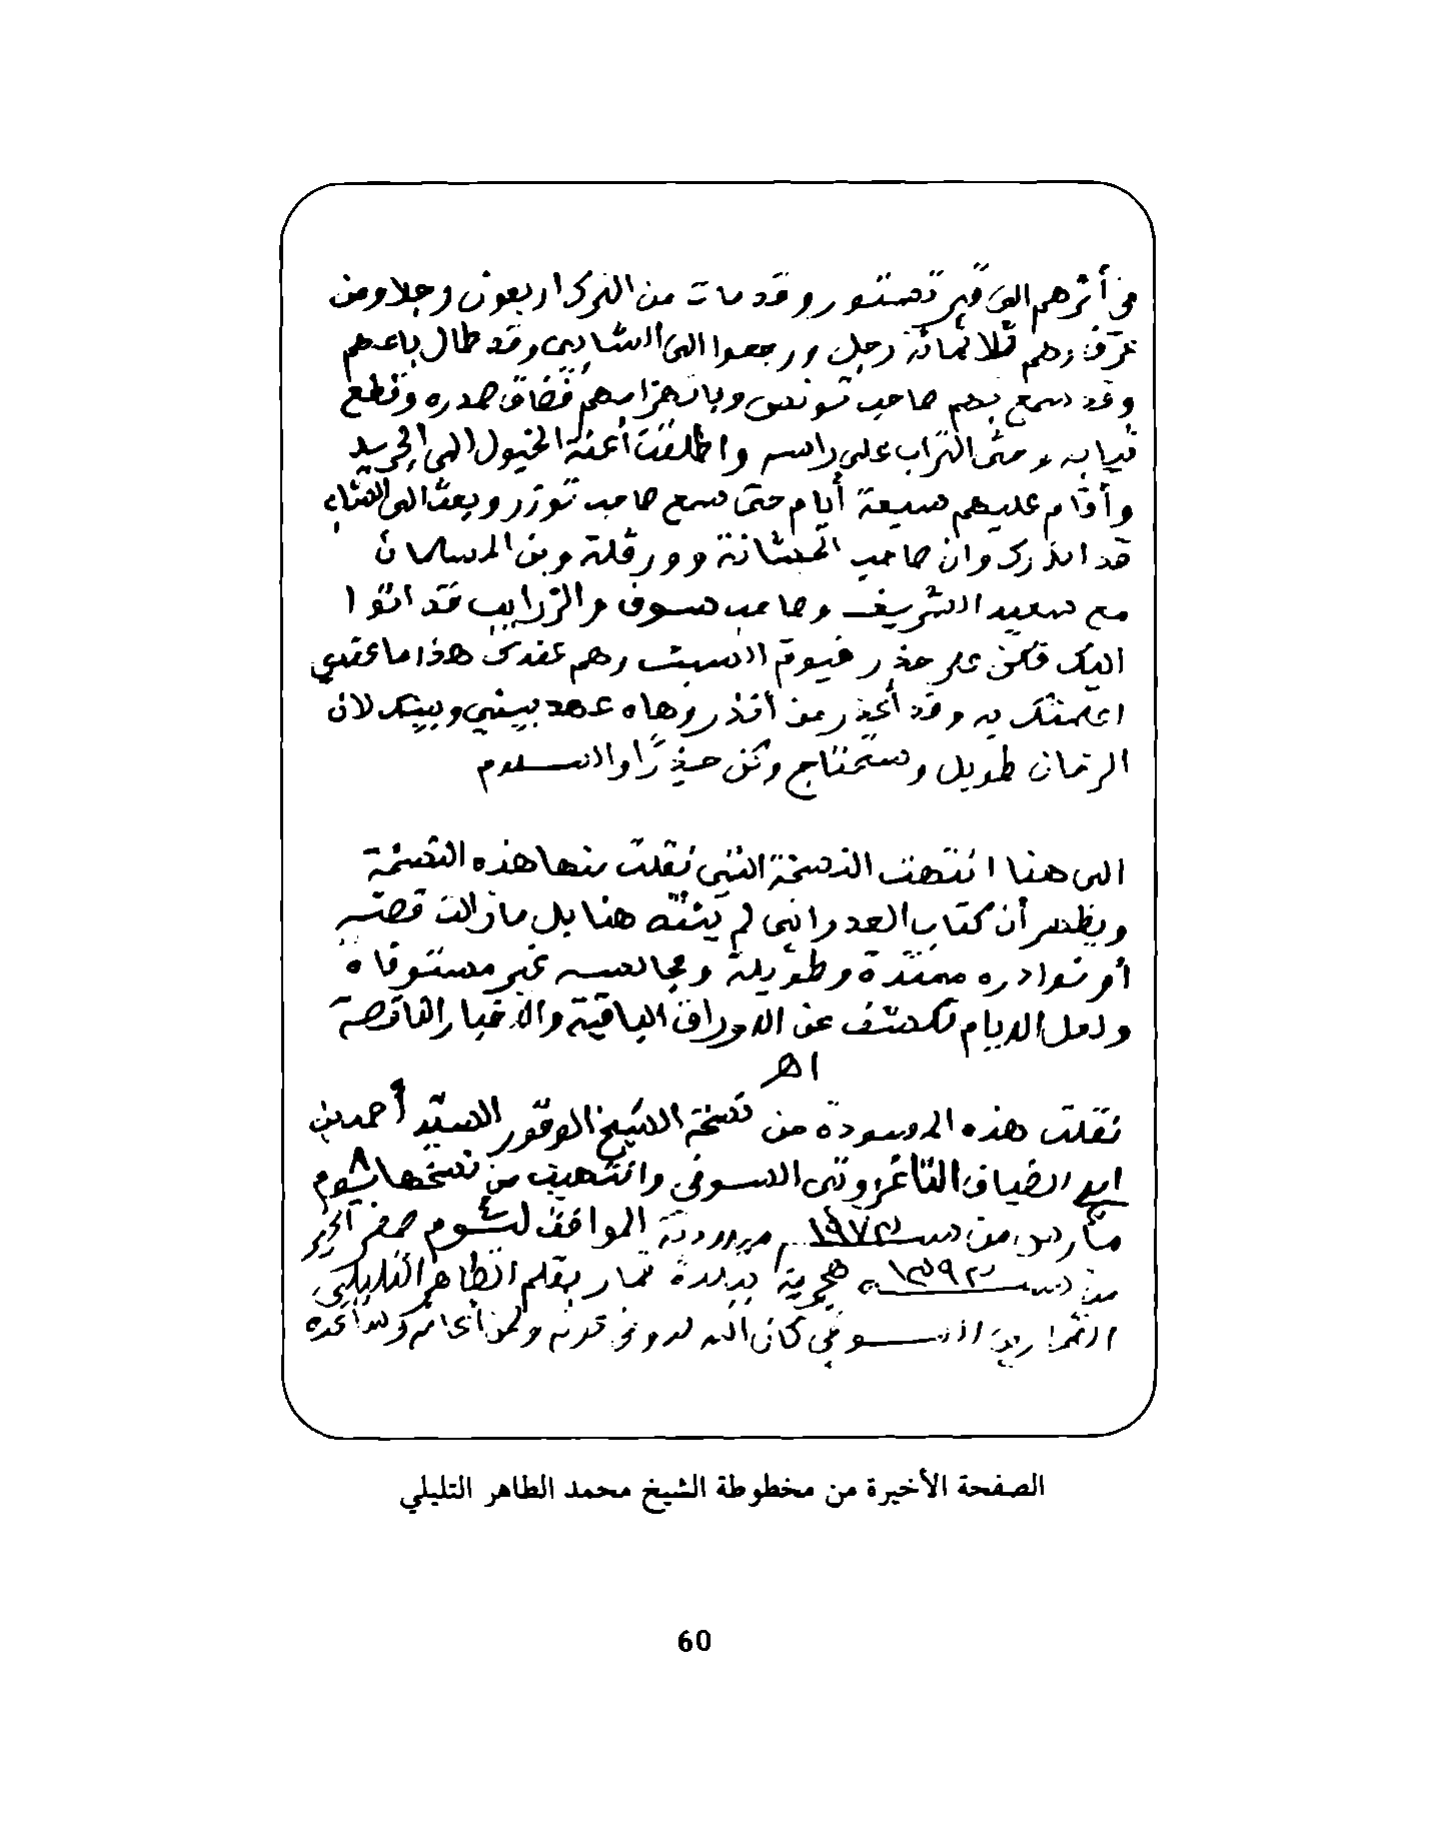 في أثرهم الى قبر تستور وقد مات من الترك اربعون رجلا ومن
غيرهم ثلاثمائة رجل ورجعوا الى الشابي وقد طال باعهم
وقد سمع بهم صاحب تونس وبانهزامهم فضاق صدره وقطع
ثيابه وحثى التراب على راسه واطلقت أعنة الخيول الى الجريد
وأقام عليهم سبعة أيام حتى سمع صاحب توزر وبعث الى الشابي
قد انذرك وان صاحب الحشانة وورقلة وبن المسلمان
مع سعيد الشريف وصاحب سوف والزرايب قد اتوا
اليك فكن على حذر فيوم السبت وهم عندك هذا ما عندي
اعلمتك به وقد أعذر من أنذر وهاه عهد بيني وبينك لان
الزمان طويل وستحتاج وكن حذرًا والسلام
الى هنا انتهت النسخة التي نقلت منها هذه النسخة
ويظهر أن كتاب العدواني لم ينته هنا بل مازالت قصته
أو نوادره ممتدة وطويلة ومجالسه غير مستوفاة
ولعل الايام تكشف عن الاوراق الباقية والأخبار الناقصة
اهـ
نقلت هذه المسودة من نسخة الشيخ الوقور السيد أحمد بن
ابي الضياف التاغزوتي السوفي وانتهيت من نسخها يوم ٨
مارس من سنة ١٩٧٣ م الموافق ليوم ٤ صفر الخير
من سنة ١٣٩٣ هجرية ببلدة قمار بقلم الطاهر التليلي
القماري السوفي كان الله له وفي عونه
الصفحة الأخيرة من مخطوطة الشيخ محمد الطاهر التليلي
60